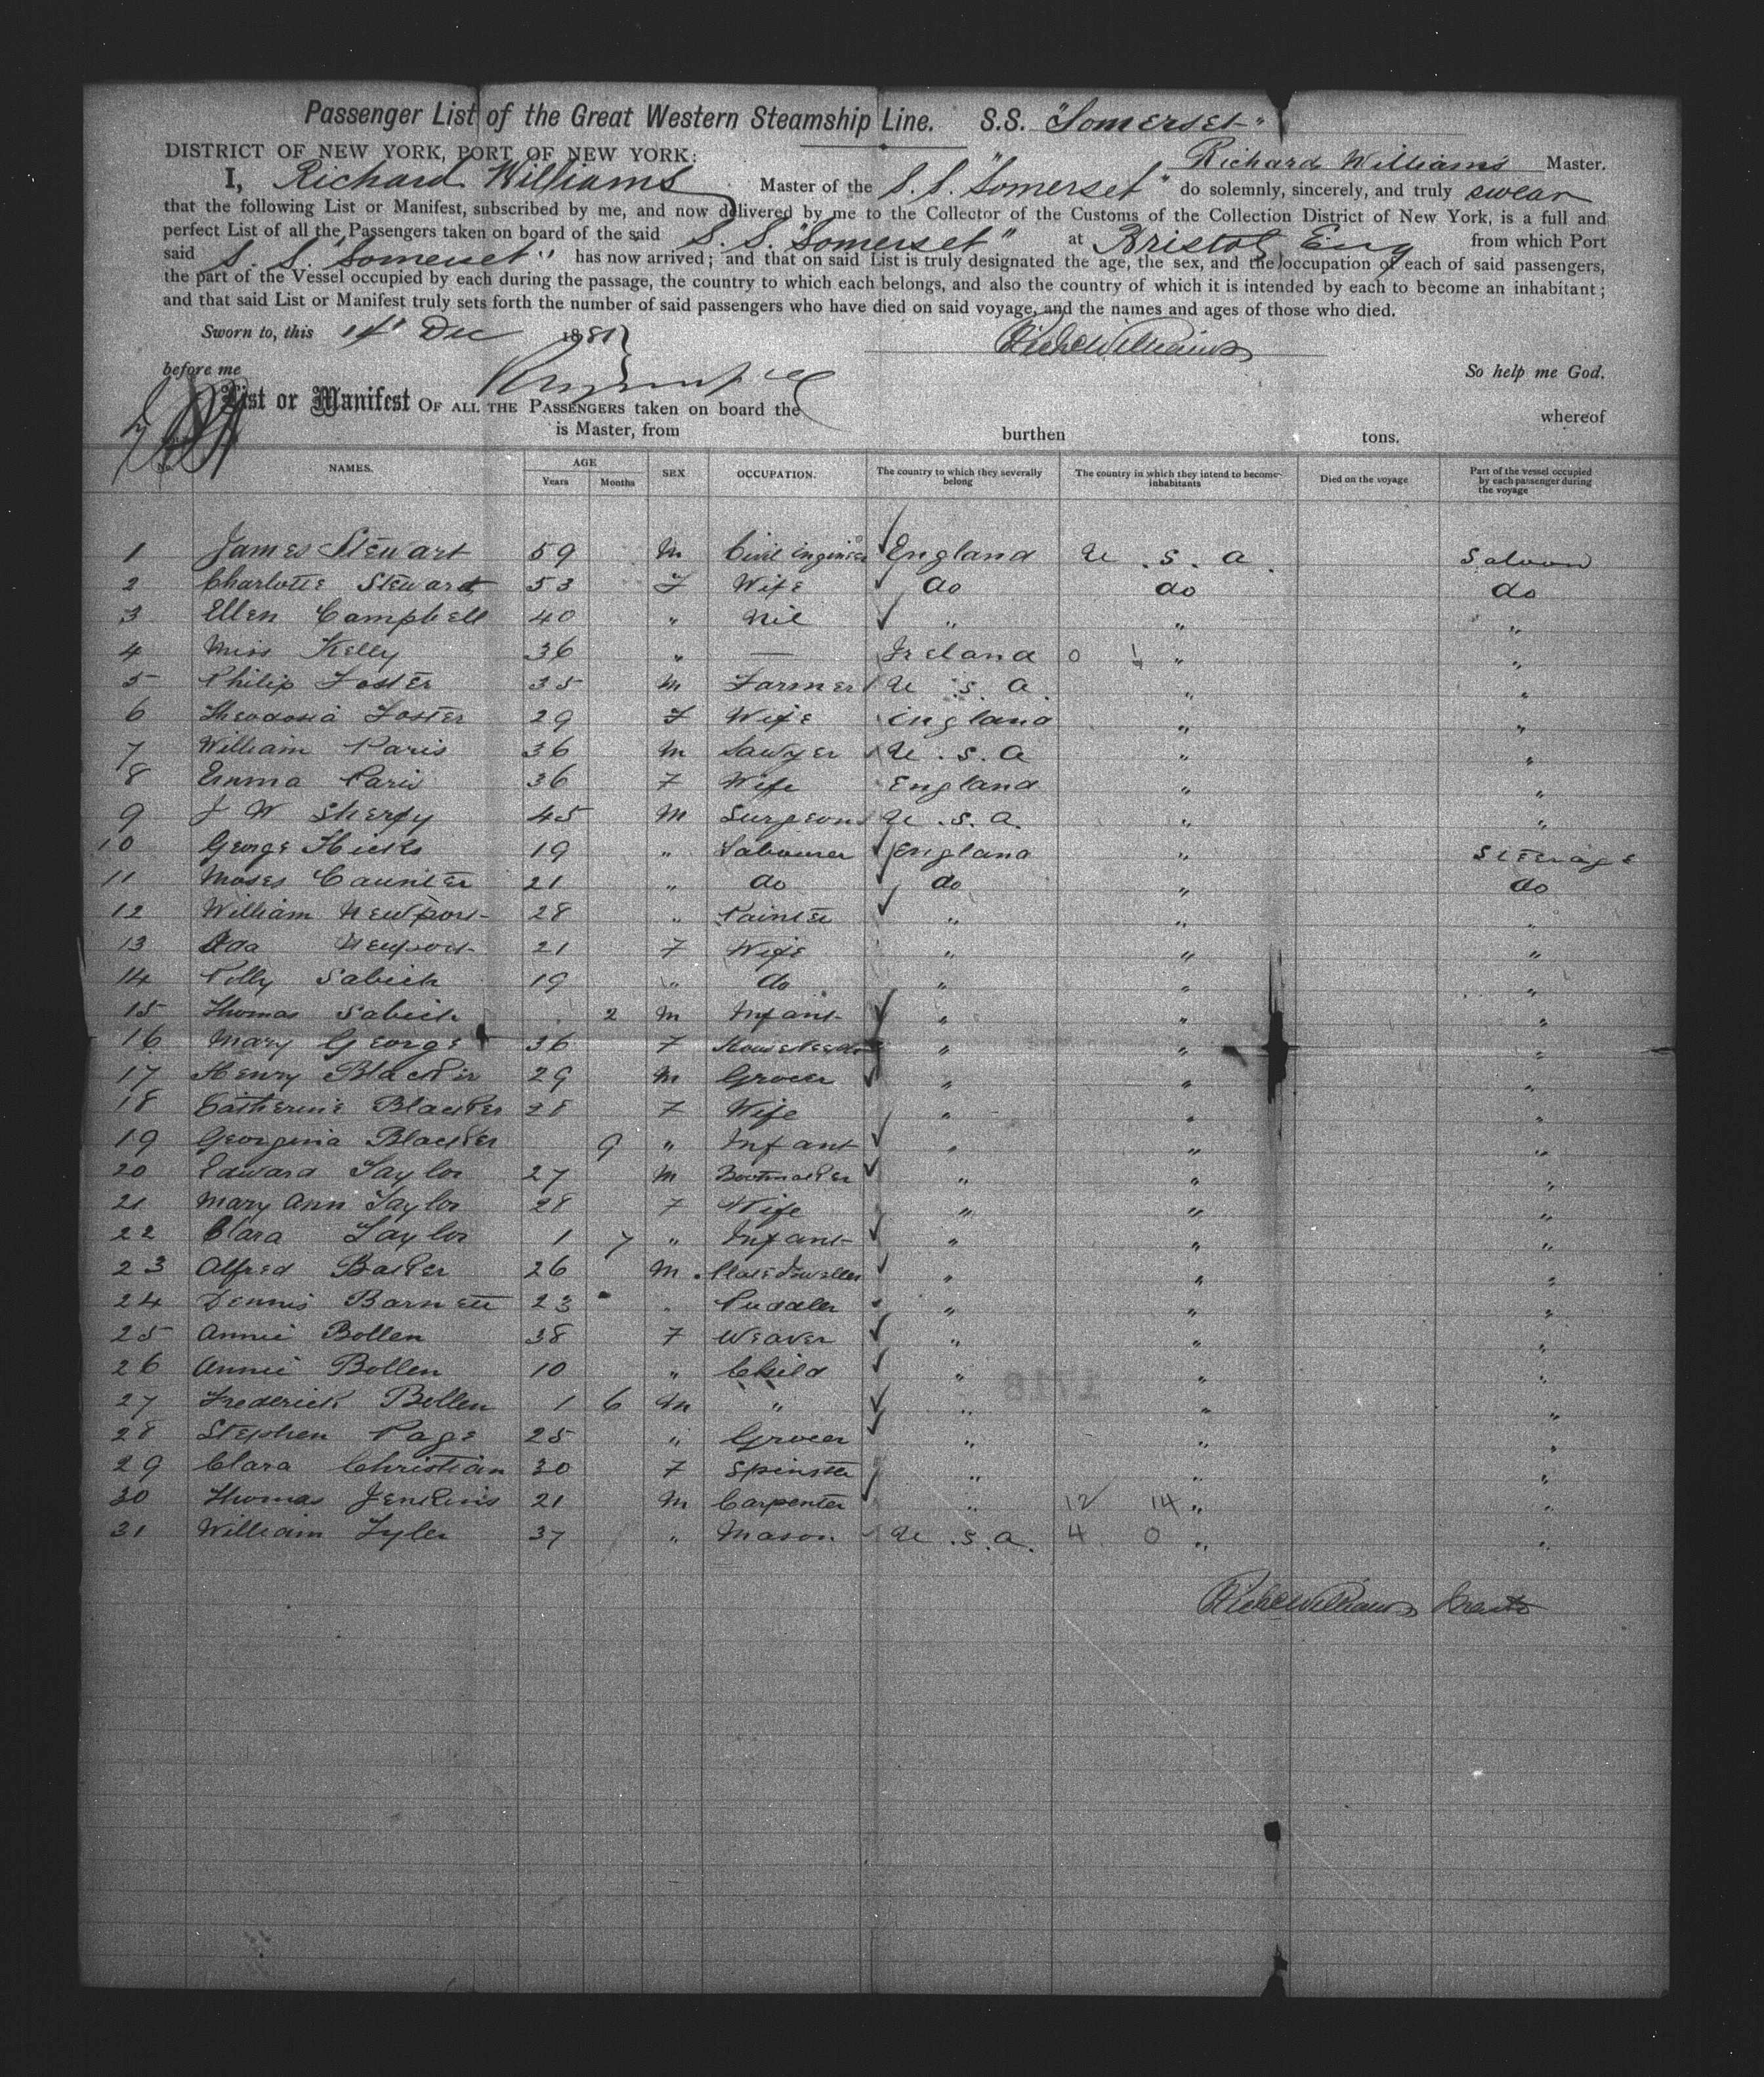 Passenger List of the Great Western Steamship Line. S.S. "Somerset"
DISTRICT OF NEW YORK, PORT OF NEW YORK: Richard Williams Master.
I, Richard Williams Master of the S.S. "Somerset" do solemnly, sincerely, and truly swear
that the following List or Manifest, subscribed by me, and now delivered by me to the Collector of the Customs of the Collection District of New York, is a full and
perfect List of all the Passengers taken on board of the said S.S. "Somerset" at Bristol Eng from which Port
said S.S. Somerset" has now arrived; and that on said List is truly designated the age, the sex, and the occupation of each of said passengers,
the part of the Vessel occupied by each during the passage, the country to which each belongs, and also the country of which it is intended by each to become an inhabitant;
and that said List or Manifest truly sets forth the number of said passengers who have died on said voyage, and the names and ages of those who died.
Sworn to, this 14 Dec 188 Richd Williams
before me So help me God.
List or Manifest OF ALL THE PASSENGERS taken on board the whereof
is Master, from burthen tons.
No. NAMES. AGE Years Months SEX OCCUPATION. The country to which they severally belong The country in which they intend to become inhabitants Died on the voyage Part of the vessel occupied by each passenger during the voyage
1 James Stewart 59 M Civil Engineer England U.S.A. Saloon
2 Charlotte Stewart 53 F Wife do do do
3 Ellen Campbell 40 " Nil " " "
4 Miss Kelly 36 " — Ireland 0 " "
5 Philip Foster 35 M Farmer U.S.A. " "
6 Theodosia Foster 29 F Wife England " "
7 William Paris 36 M Sawyer U.S.A " "
8 Emma Paris 36 F Wife England " "
9 J W Sherfy 45 M Surgeon U.S.A. " "
10 George Hicks 19 " Labourer England " Steerage
11 Moses Caunter 21 " do do " do
12 William Newport 28 " Painter " " "
13 Ada Newport 21 F Wife " " "
14 Polly Sabich 19 " do " " "
15 Thomas Sabich 2 M Infant " " "
16 Mary George 36 F Housekeeper " " "
17 Henry Blacker 29 M Grocer " " "
18 Catherine Blacker 28 F Wife " " "
19 Georgina Blacker 9 " Infant " " "
20 Edward Taylor 27 M Bootmaker " " "
21 Mary Ann Taylor 28 F Wife " " "
22 Clara Taylor 1 7 " Infant " " "
23 Alfred Barker 26 M " " "
24 Dennis Barnett 23 " Puddler " " "
25 Annie Bollen 38 F Weaver " " "
26 Annie Bollen 10 " Child " " "
27 Frederick Bollen 1 6 M " " " "
28 Stephen Page 25 " Grocer " " "
29 Clara Christian 30 F Spinster " " "
30 Thomas Jenkins 21 M Carpenter " 12 14 " "
31 William Tyler 37 " Mason U.S.A. 4 0 " "
Richd Williams